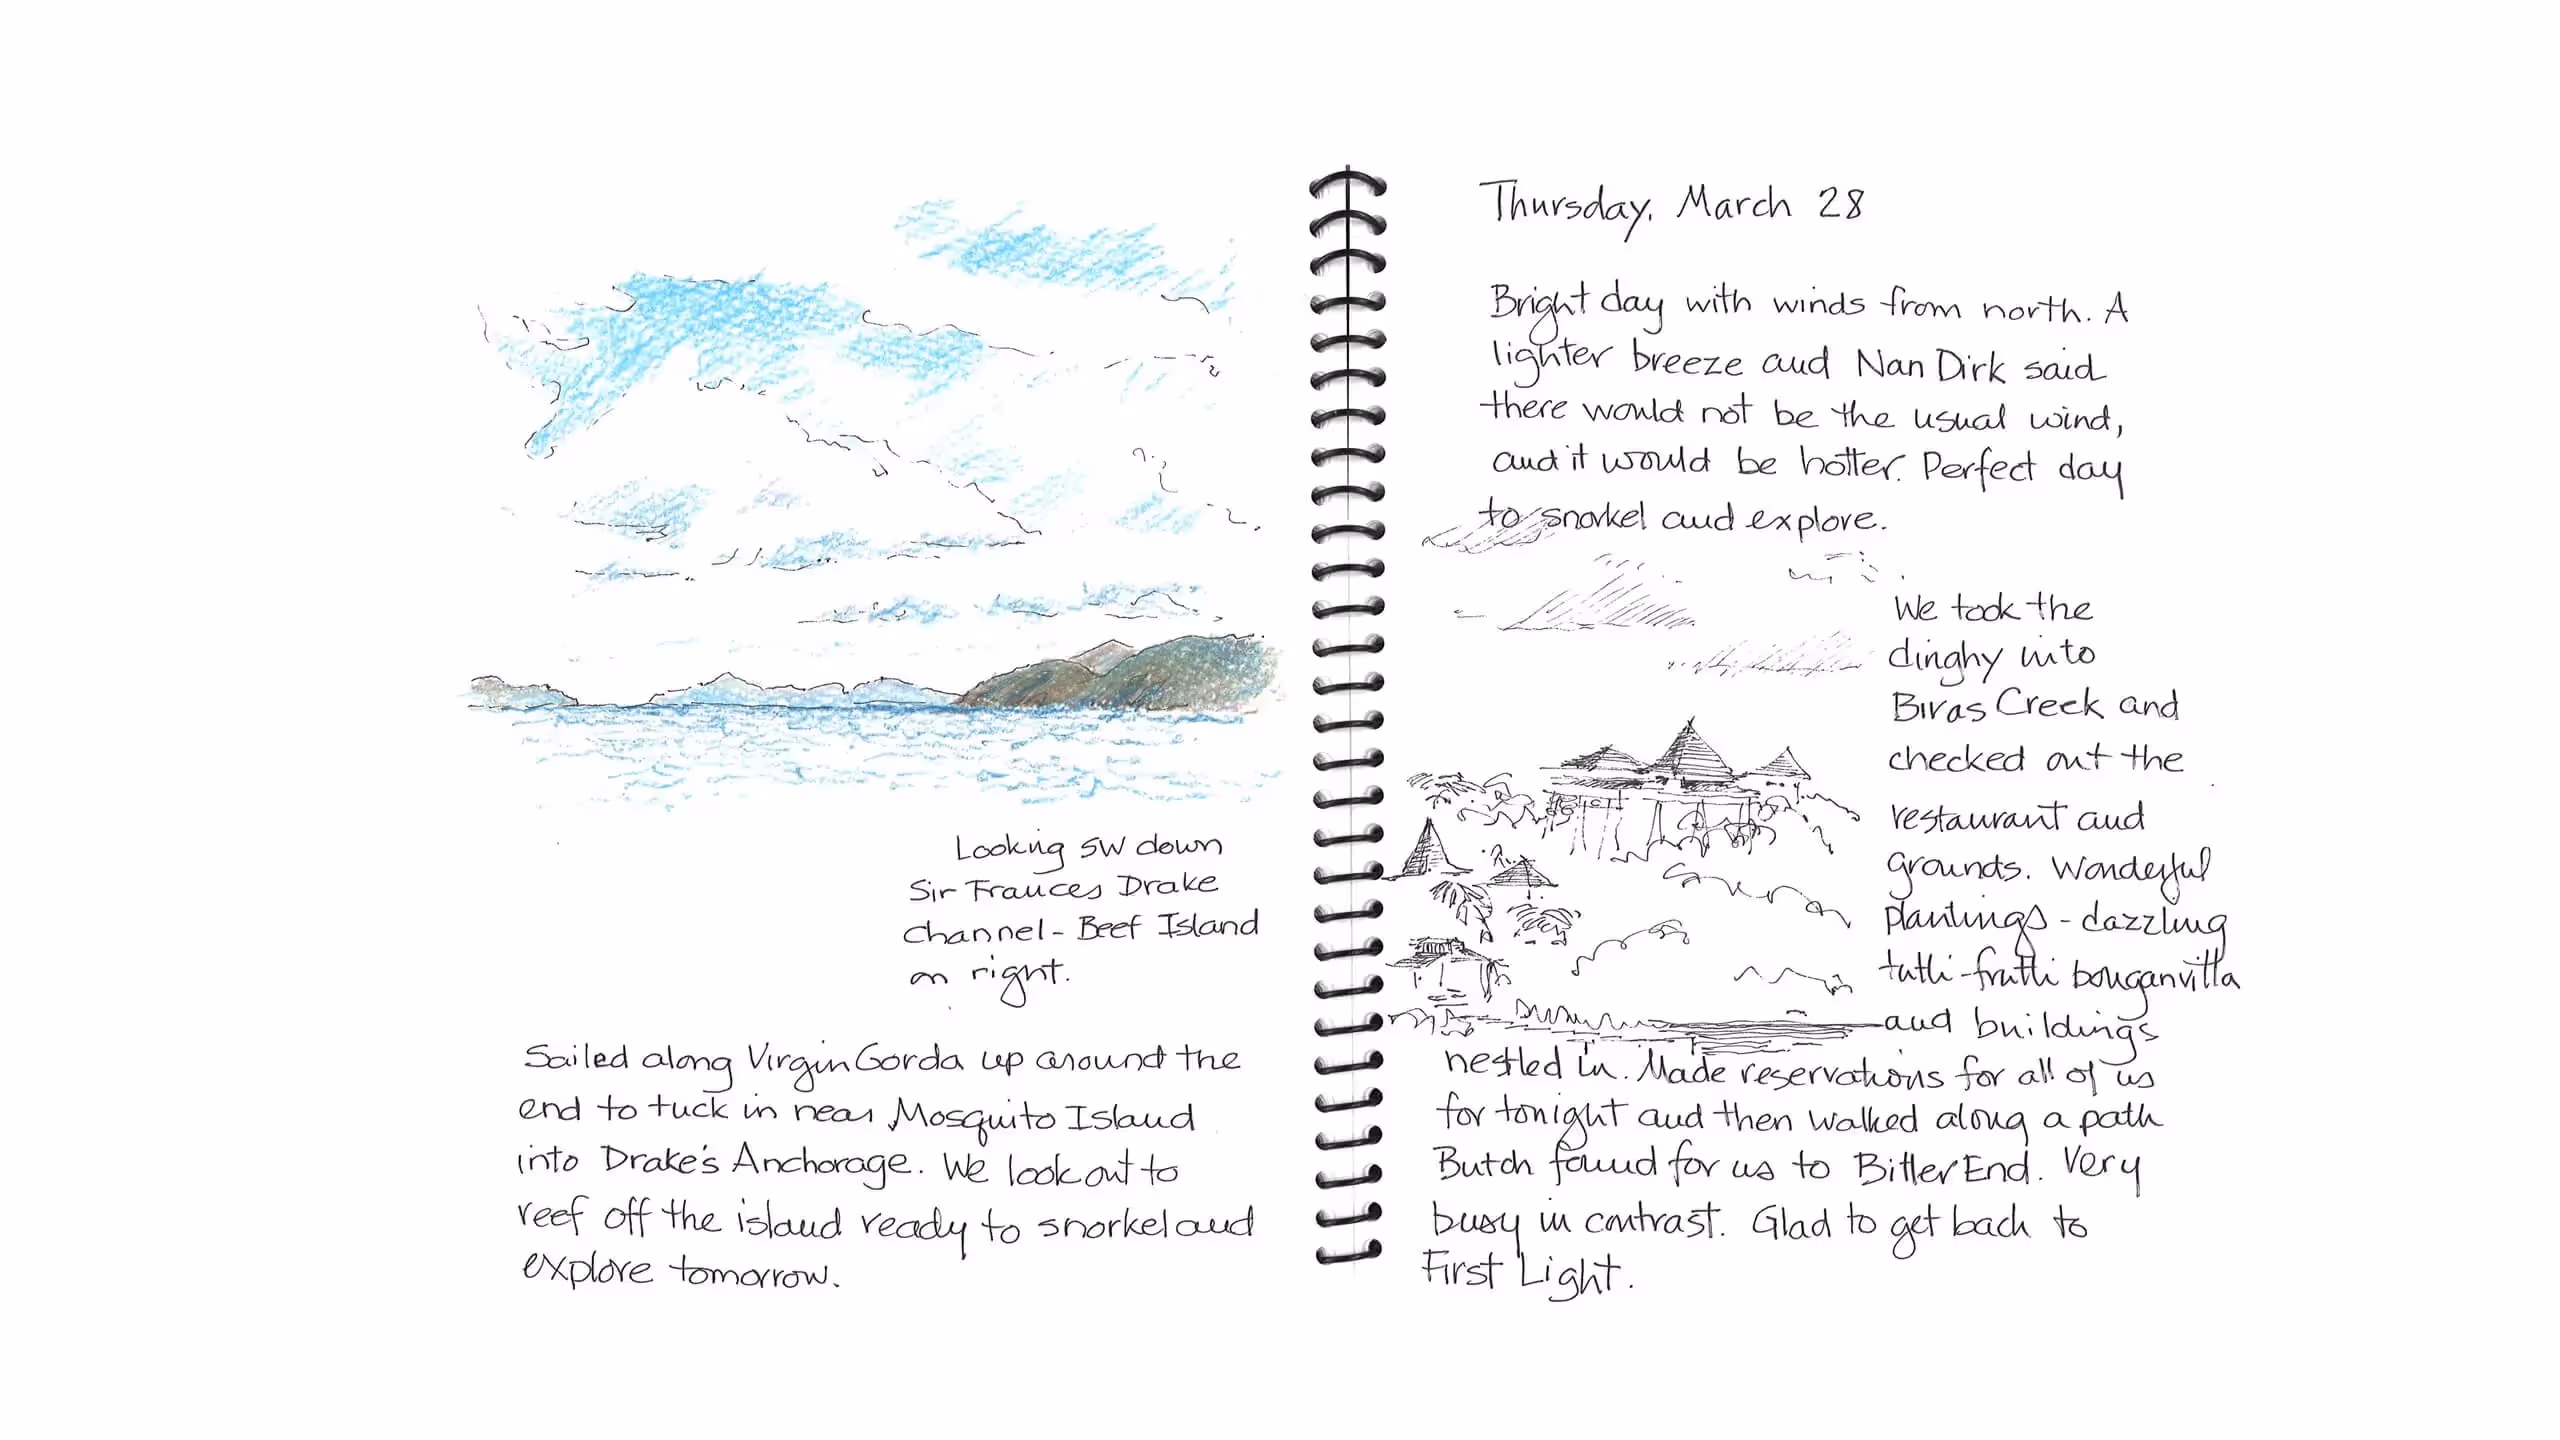 Looking SW down
Sir Frances Drake
Channel - Beef Island
on right.
Sailed along Virgin Gorda up around the
end to tuck in near Mosquito Island
into Drake's Anchorage. We look out to
reef off the island ready to snorkel and
explore tomorrow.
Thursday, March 28
Bright day with winds from north. A
lighter breeze and Nan Dirk said
there would not be the usual wind,
and it would be hotter. Perfect day
to snorkel and explore.
We took the
dinghy into
Biras Creek and
checked out the
restaurant and
grounds. Wonderful
plantings - dazzling
tutti-frutti bouganvilla
and buildings
nestled in. Made reservations for all of us
for tonight and then walked along a path
Butch found for us to Bitter End. Very
busy in contrast. Glad to get back to
First Light.